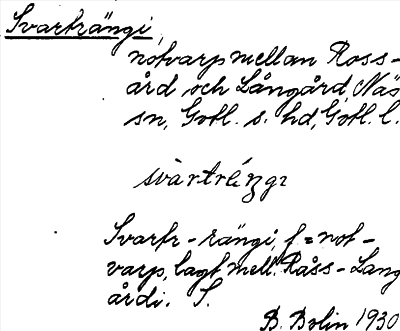 Svarträngi,
notvarp mellan Ross-
ård och Långård, Näs
sn, Gotl. s. hd, Gotl. l.
svàrtréŋgı
Svartr-rängi, f = not-
varp, lagt mell. Råss- Lang
årdi. S.
B. Bolin 1930